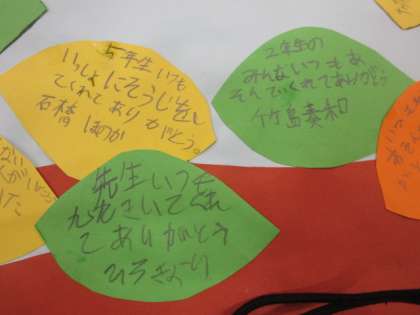 5年生いつも
いっしょにそうじをし
てくれてありがとう。
石橋 ほのか
2年生の
みんないつもあ
そんでくれてありがとう
竹島奏和
先生いつも
九九きいてくれ
てありがとう
ひろきより
いつも
ない